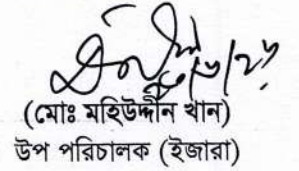 (মোঃ মহিউদ্দীন খান)
উপ পরিচালক (ইজারা)